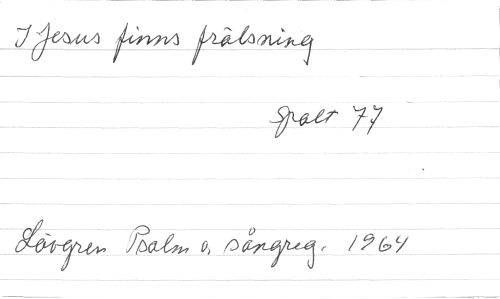 I Jesus finns frälsning
spalt 77
Lövgren Psalm o. sångreg. 1964